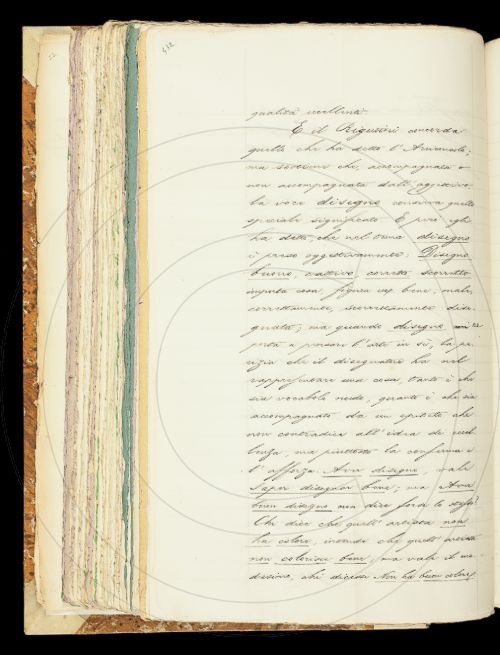 412
qualità eccellente.
E il Rigutini concorda
quello che ha detto l'
ma sostiene che, accompagnata o
non accompagnata dall'aggettivo
la voce disegno conserva quello
speciale significato. E però egli
ha detto, che nel tema disegno
è preso oggettivamente: Disegno
buono, cattivo, corretto, scorretto
importa cosa, figura ben, male,
correttamente, scorrettamente dise-
gnata; ma quando disegno
porta a pensare l'arte in sè, la pe-
rizia che il disegnatore ha nel
rappresentare una cosa, tanto è che
sia vocabolo nudo, quanto è che sia
accompagnato da un epiteto che
non contradica all'idea di eccel-
lenza, ma piuttosto la confermi e
l'afforzi. Aver disegno, vale
saper disegnar bene; ma Aver
buon disegno non dice forse lo stesso?
Chi dice che quell'artista non
ha colore, intende che quell'artista
non colorisce bene, ma vale il me-
desimo, chi dicesse Non ha buon colore,